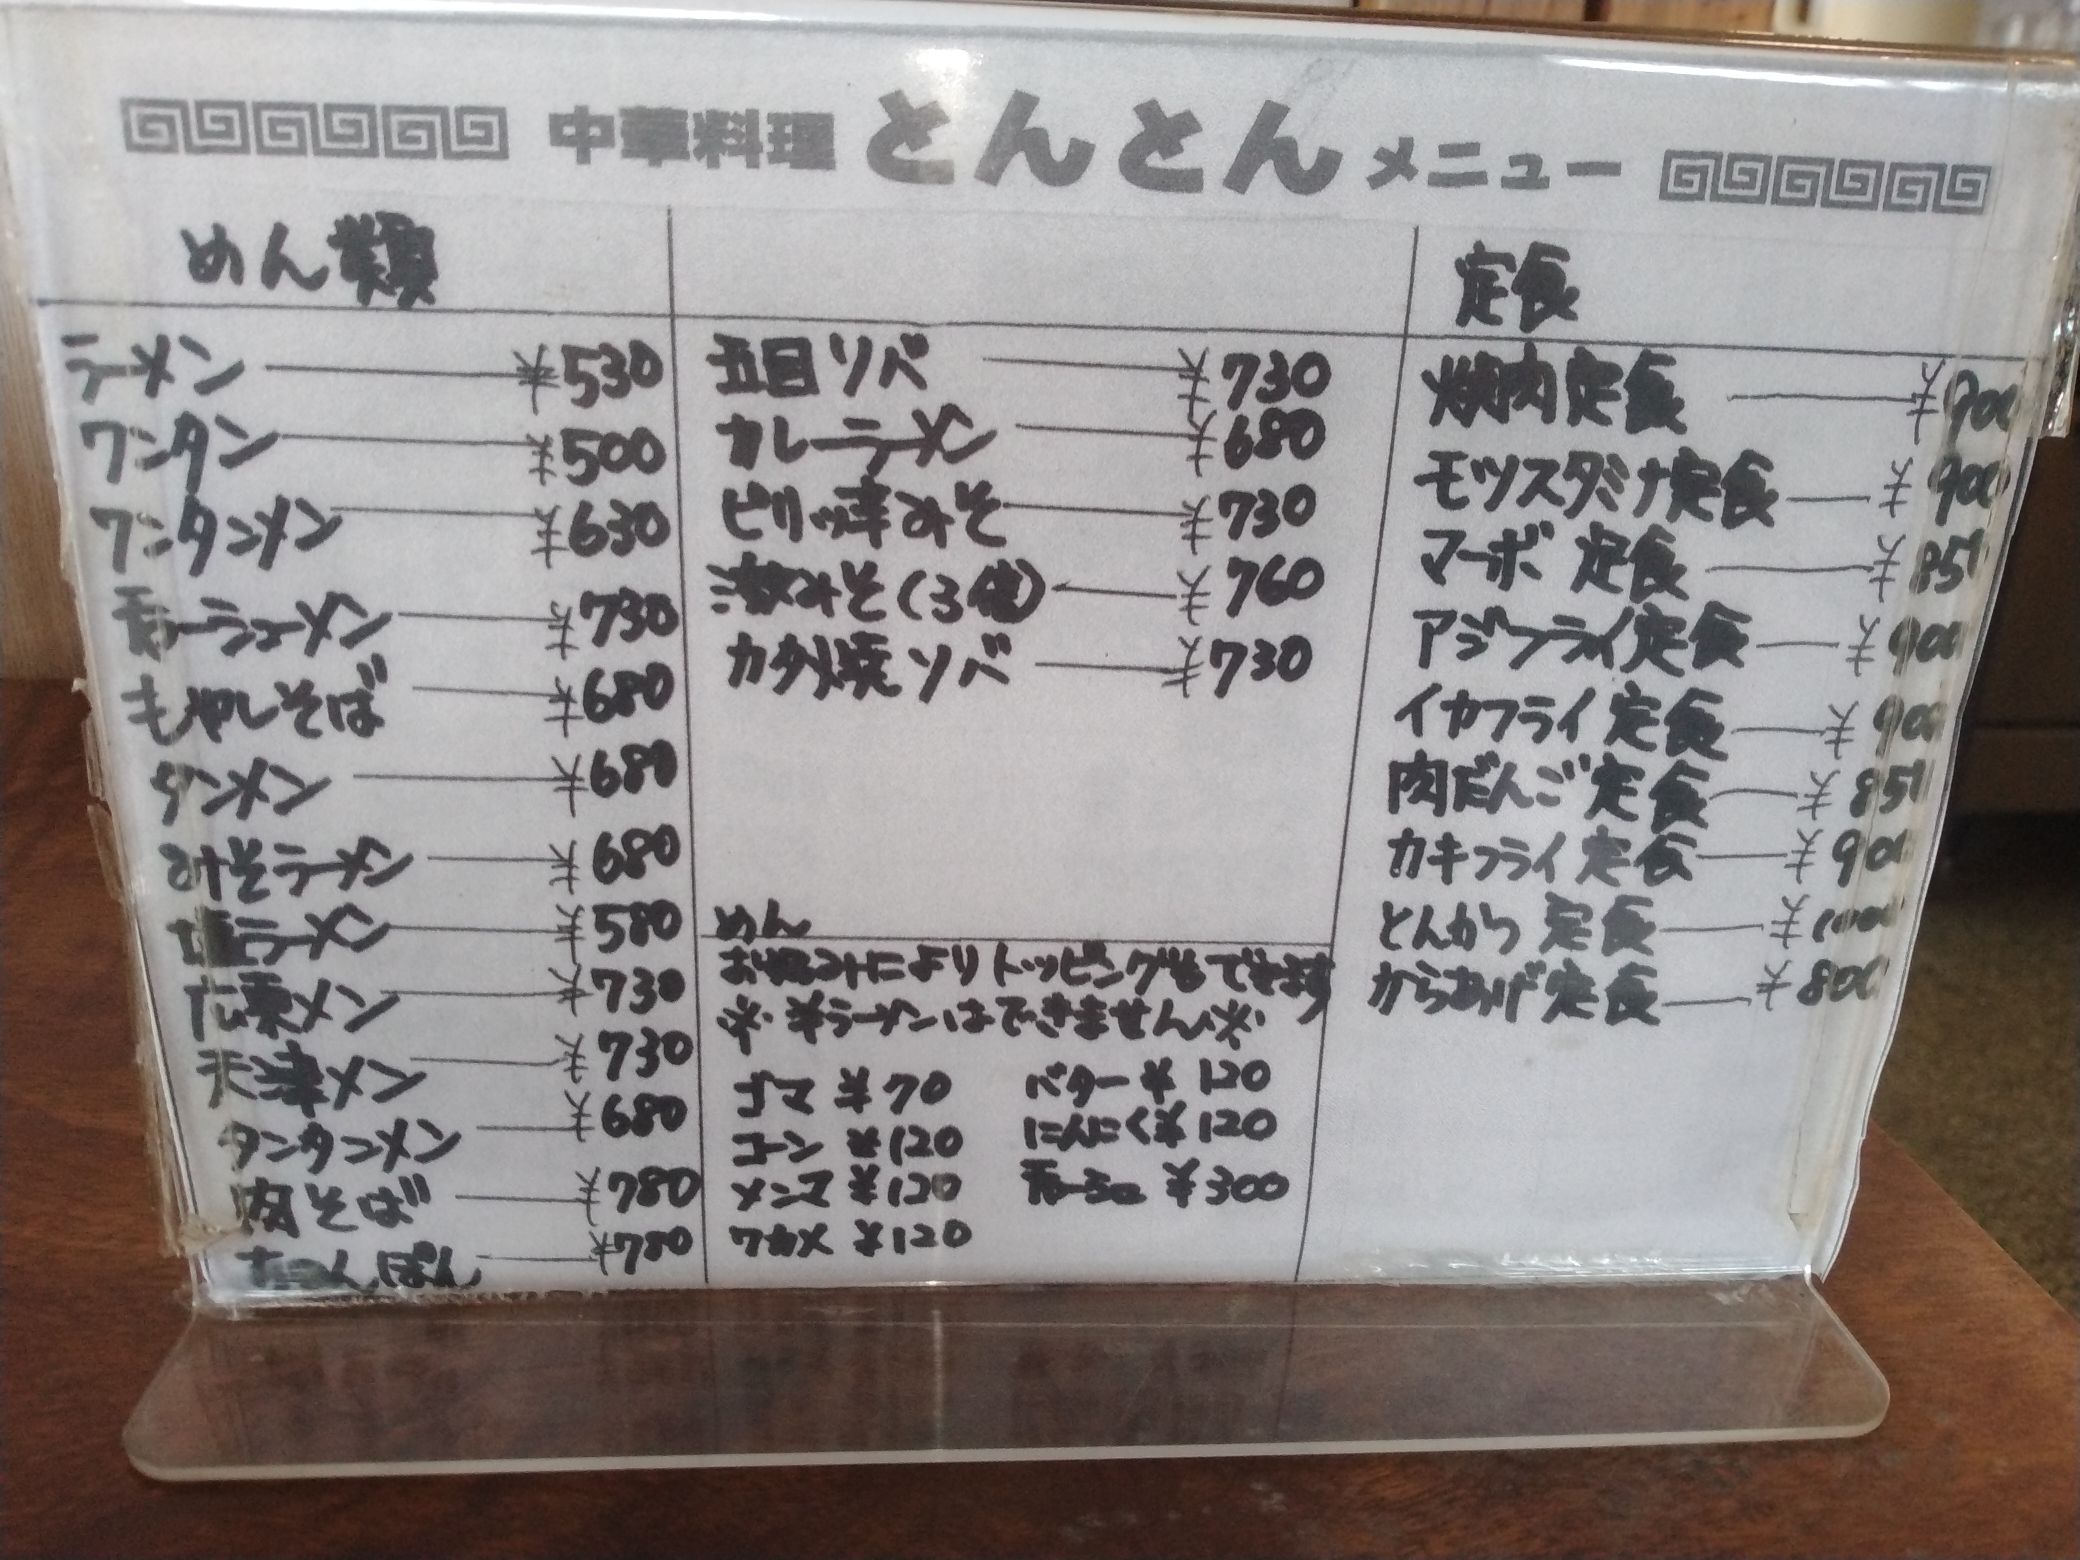 中華料理 とんとん メニュー
めん類
ラーメン ¥530
ワンタン ¥500
ワンタンメン ¥630
チャーシューメン ¥730
もやしそば ¥680
タンメン ¥680
みそラーメン ¥680
塩ラーメン ¥580
広東メン ¥730
天津メン ¥730
タンタンメン ¥680
肉そば ¥780
ちゃんぽん ¥780
五目ソバ ¥730
カレーラーメン ¥680
ピリッ辛みそ ¥730
激みそ(3倍) ¥760
カタ焼ソバ ¥730
めん
お好みによりトッピングもできます
※半ラーメンはできません※
ゴマ ¥70
コーン ¥120
メンマ ¥120
ワカメ ¥120
バター ¥120
にんにく ¥120
¥300
定食
焼肉定食 ¥900
モツスタミナ定食 ¥900
マーボ定食 ¥850
アジフライ定食 ¥900
イカフライ定食 ¥900
肉だんご定食 ¥850
カキフライ定食 ¥900
とんかつ定食 ¥1000
からあげ定食 ¥800